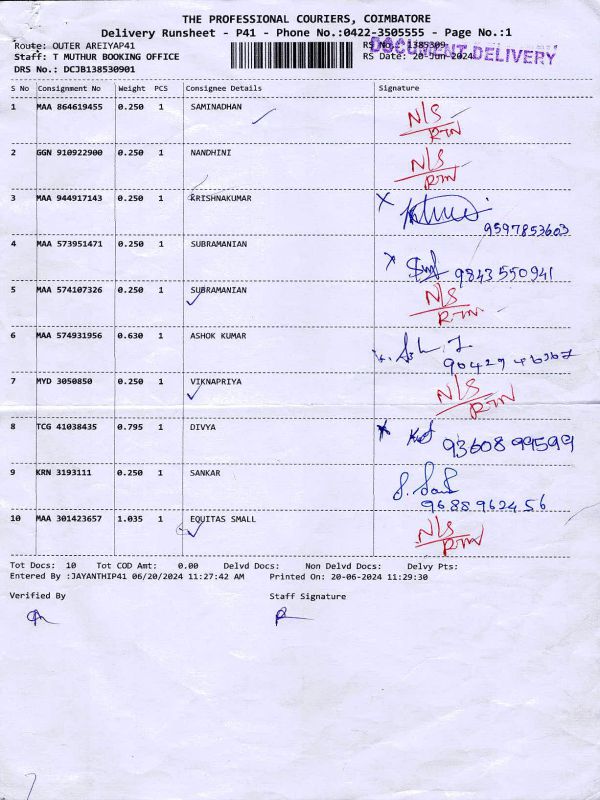 THE PROFESSIONAL COURIERS, COIMBATORE
Delivery Runsheet - P41 - Phone No.:0422-3505555 - Page No.:1
Route: OUTER AREIYAP41 RS No.: 1385309
DOCUMENT DELIVERY
Staff: T MUTHUR BOOKING OFFICE RS Date: 20-Jun-2024
DRS No.: DCJB138530901
S No Consignment No Weight PCS Consignee Details Signature
1 MAA 864619455 0.250 1 SAMINADHAN N/S
RTN
2 GGN 910922900 0.250 1 NANDHINI N/S
RTN
3 MAA 944917143 0.250 1 KRISHNAKUMAR X
9597853603
4 MAA 573951471 0.250 1 SUBRAMANIAN X
9843550941
5 MAA 574107326 0.250 1 SUBRAMANIAN N/S
RTN
6 MAA 574931956 0.630 1 ASHOK KUMAR
7 MYD 3050850 0.250 1 VIKNAPRIYA N/S
RTN
8 TCG 41038435 0.795 1 DIVYA
9360899599
9 KRN 3193111 0.250 1 SANKAR
9688962456
10 MAA 301423657 1.035 1 EQUITAS SMALL N/S
RTN
Tot Docs: 10 Tot COD Amt: 0.00 Delvd Docs: Non Delvd Docs: Delvy Pts:
Entered By :JAYANTHIP41 06/20/2024 11:27:42 AM Printed On: 20-06-2024 11:29:30
Verified By Staff Signature